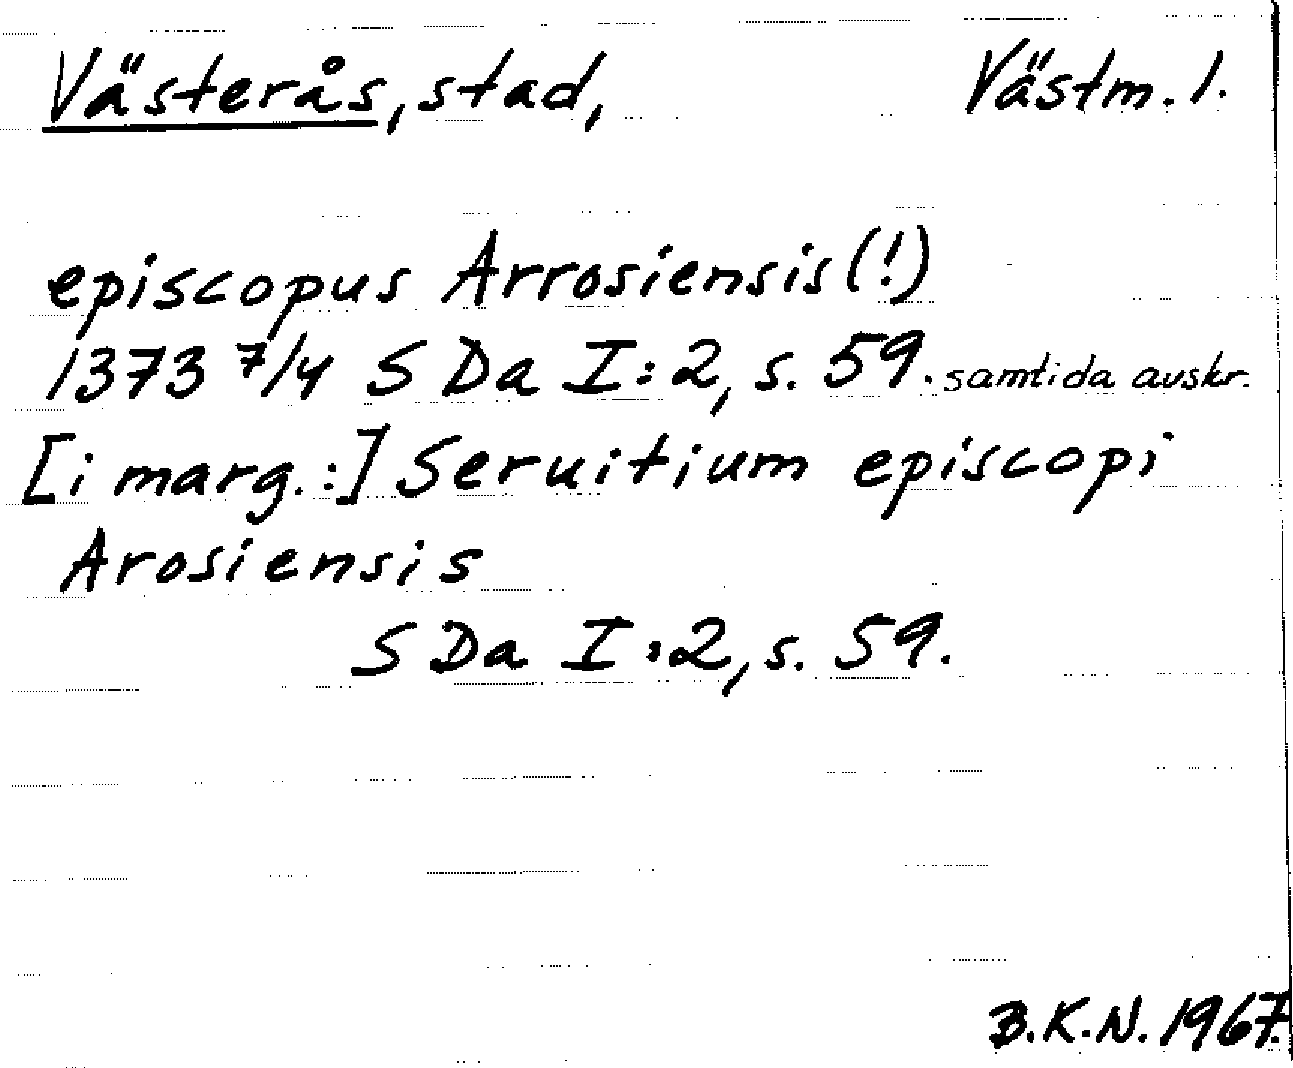 Västerås, stad, Västm. l.
episcopus Arrosiensis (!)
1373 7/4 S Da I:2, s. 59. samtida avskr.
[i marg.:] Seruitium episcopi
Arosiensis
S Da I:2, s. 59.
B.K.N. 1967.